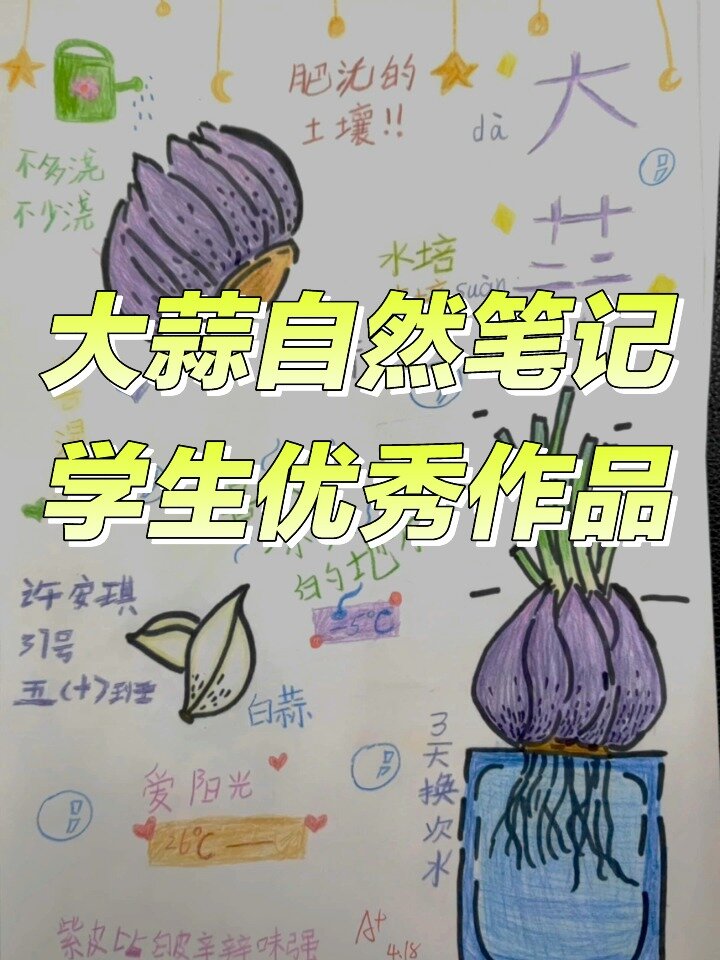 肥沃的
土壤!!
大
dà
不多浇
不少浇
水培
suàn
大蒜自然笔记
学生优秀作品
的地方
-5℃
许安琪
37号
五(十)班
白蒜
3天换次水
爱阳光
26℃ —
紫皮比白皮辛辣味强
A+
4.18